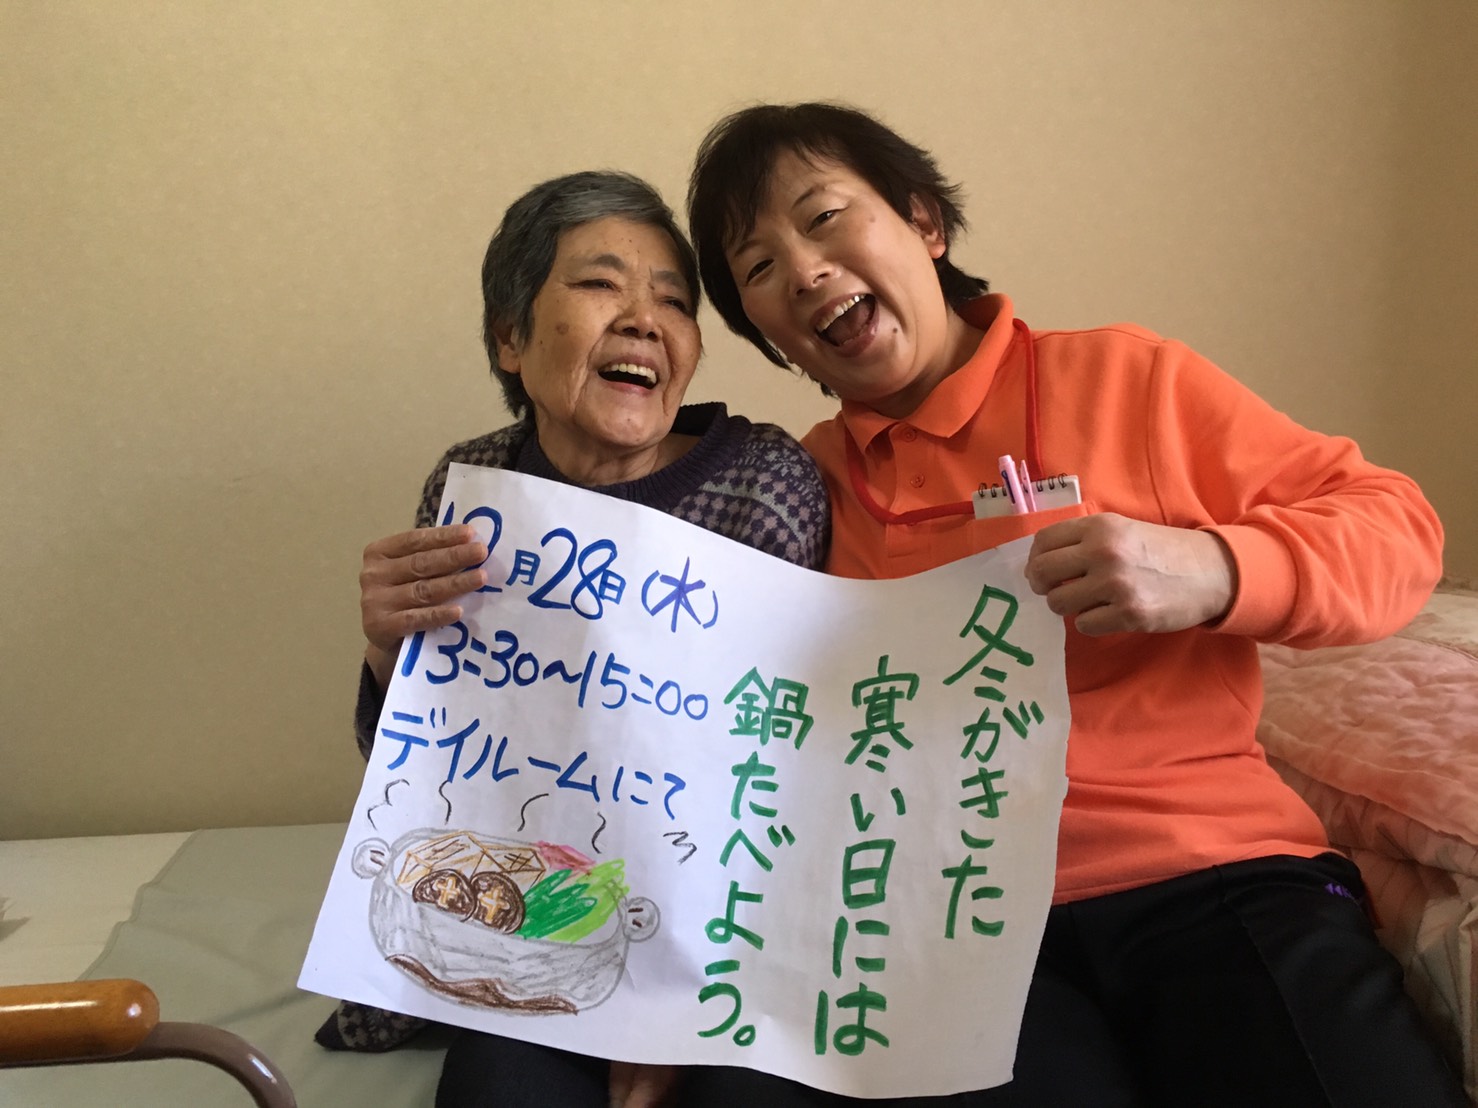 冬がきた
寒い日には
鍋たべよう。
12月28日(水)
13:30~15:00
デイルームにて